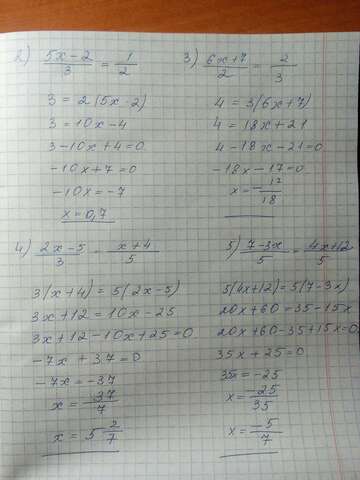 2) (5x-2)/3 = 1/2
3 = 2(5x-2)
3 = 10x-4
3-10x+4=0
-10x+7=0
-10x=-7
x=0,7
3) (6x+7)/2 = 2/3
4 = 3(6x+7)
4 = 18x+21
4-18x-21=0
-18x-17=0
x=-17/18
4) (2x-5)/3 = (x+4)/5
3(x+4) = 5(2x-5)
3x+12=10x-25
3x+12-10x+25=0
-7x+37=0
-7x=-37
x = 37/7
x = 5 2/7
5) (7-3x)/5 = (4x+12)/5
5(4x+12)=5(7-3x)
20x+60=35-15x
20x+60-35+15x=0
35x+25=0
35x=-25
x=-25/35
x=-5/7